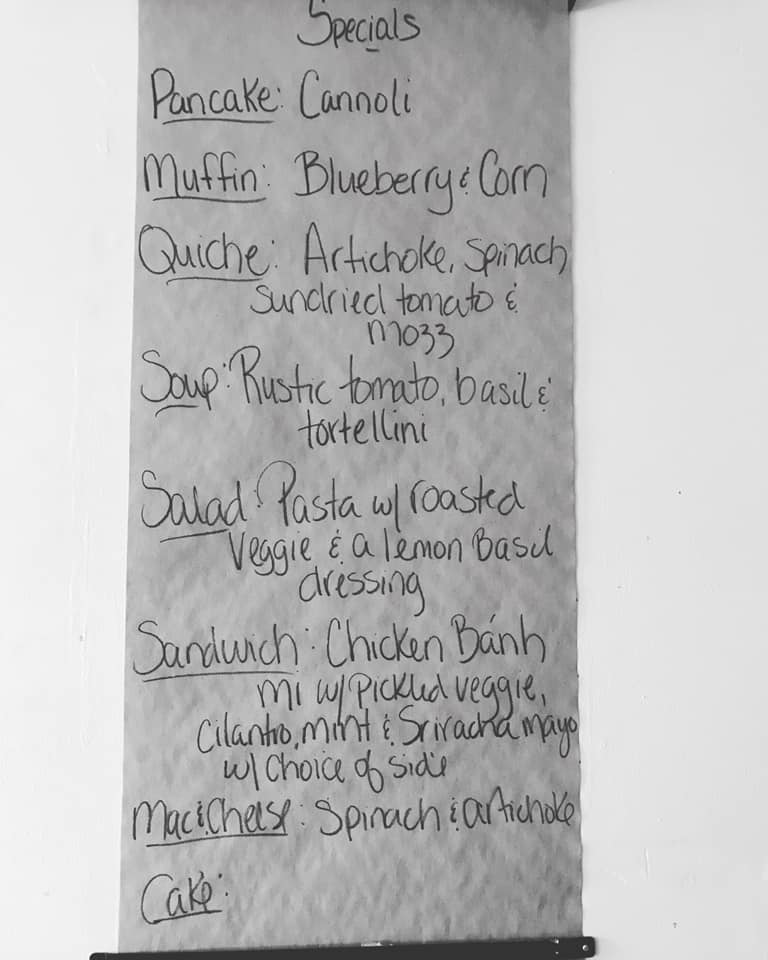 Specials
Pancake: Cannoli
Muffin: Blueberry & Corn
Quiche: Artichoke, Spinach
Sundried tomato &
Mozz
Soup: Rustic tomato, basil &
tortellini
Salad: Pasta w/ roasted
Veggie & a lemon Basil
dressing
Sandwich: Chicken Bánh
mi w/ Pickled veggie,
Cilantro, mint & Sriracha mayo
w/ Choice of side
Mac & Cheese: Spinach & artichoke
Cake: